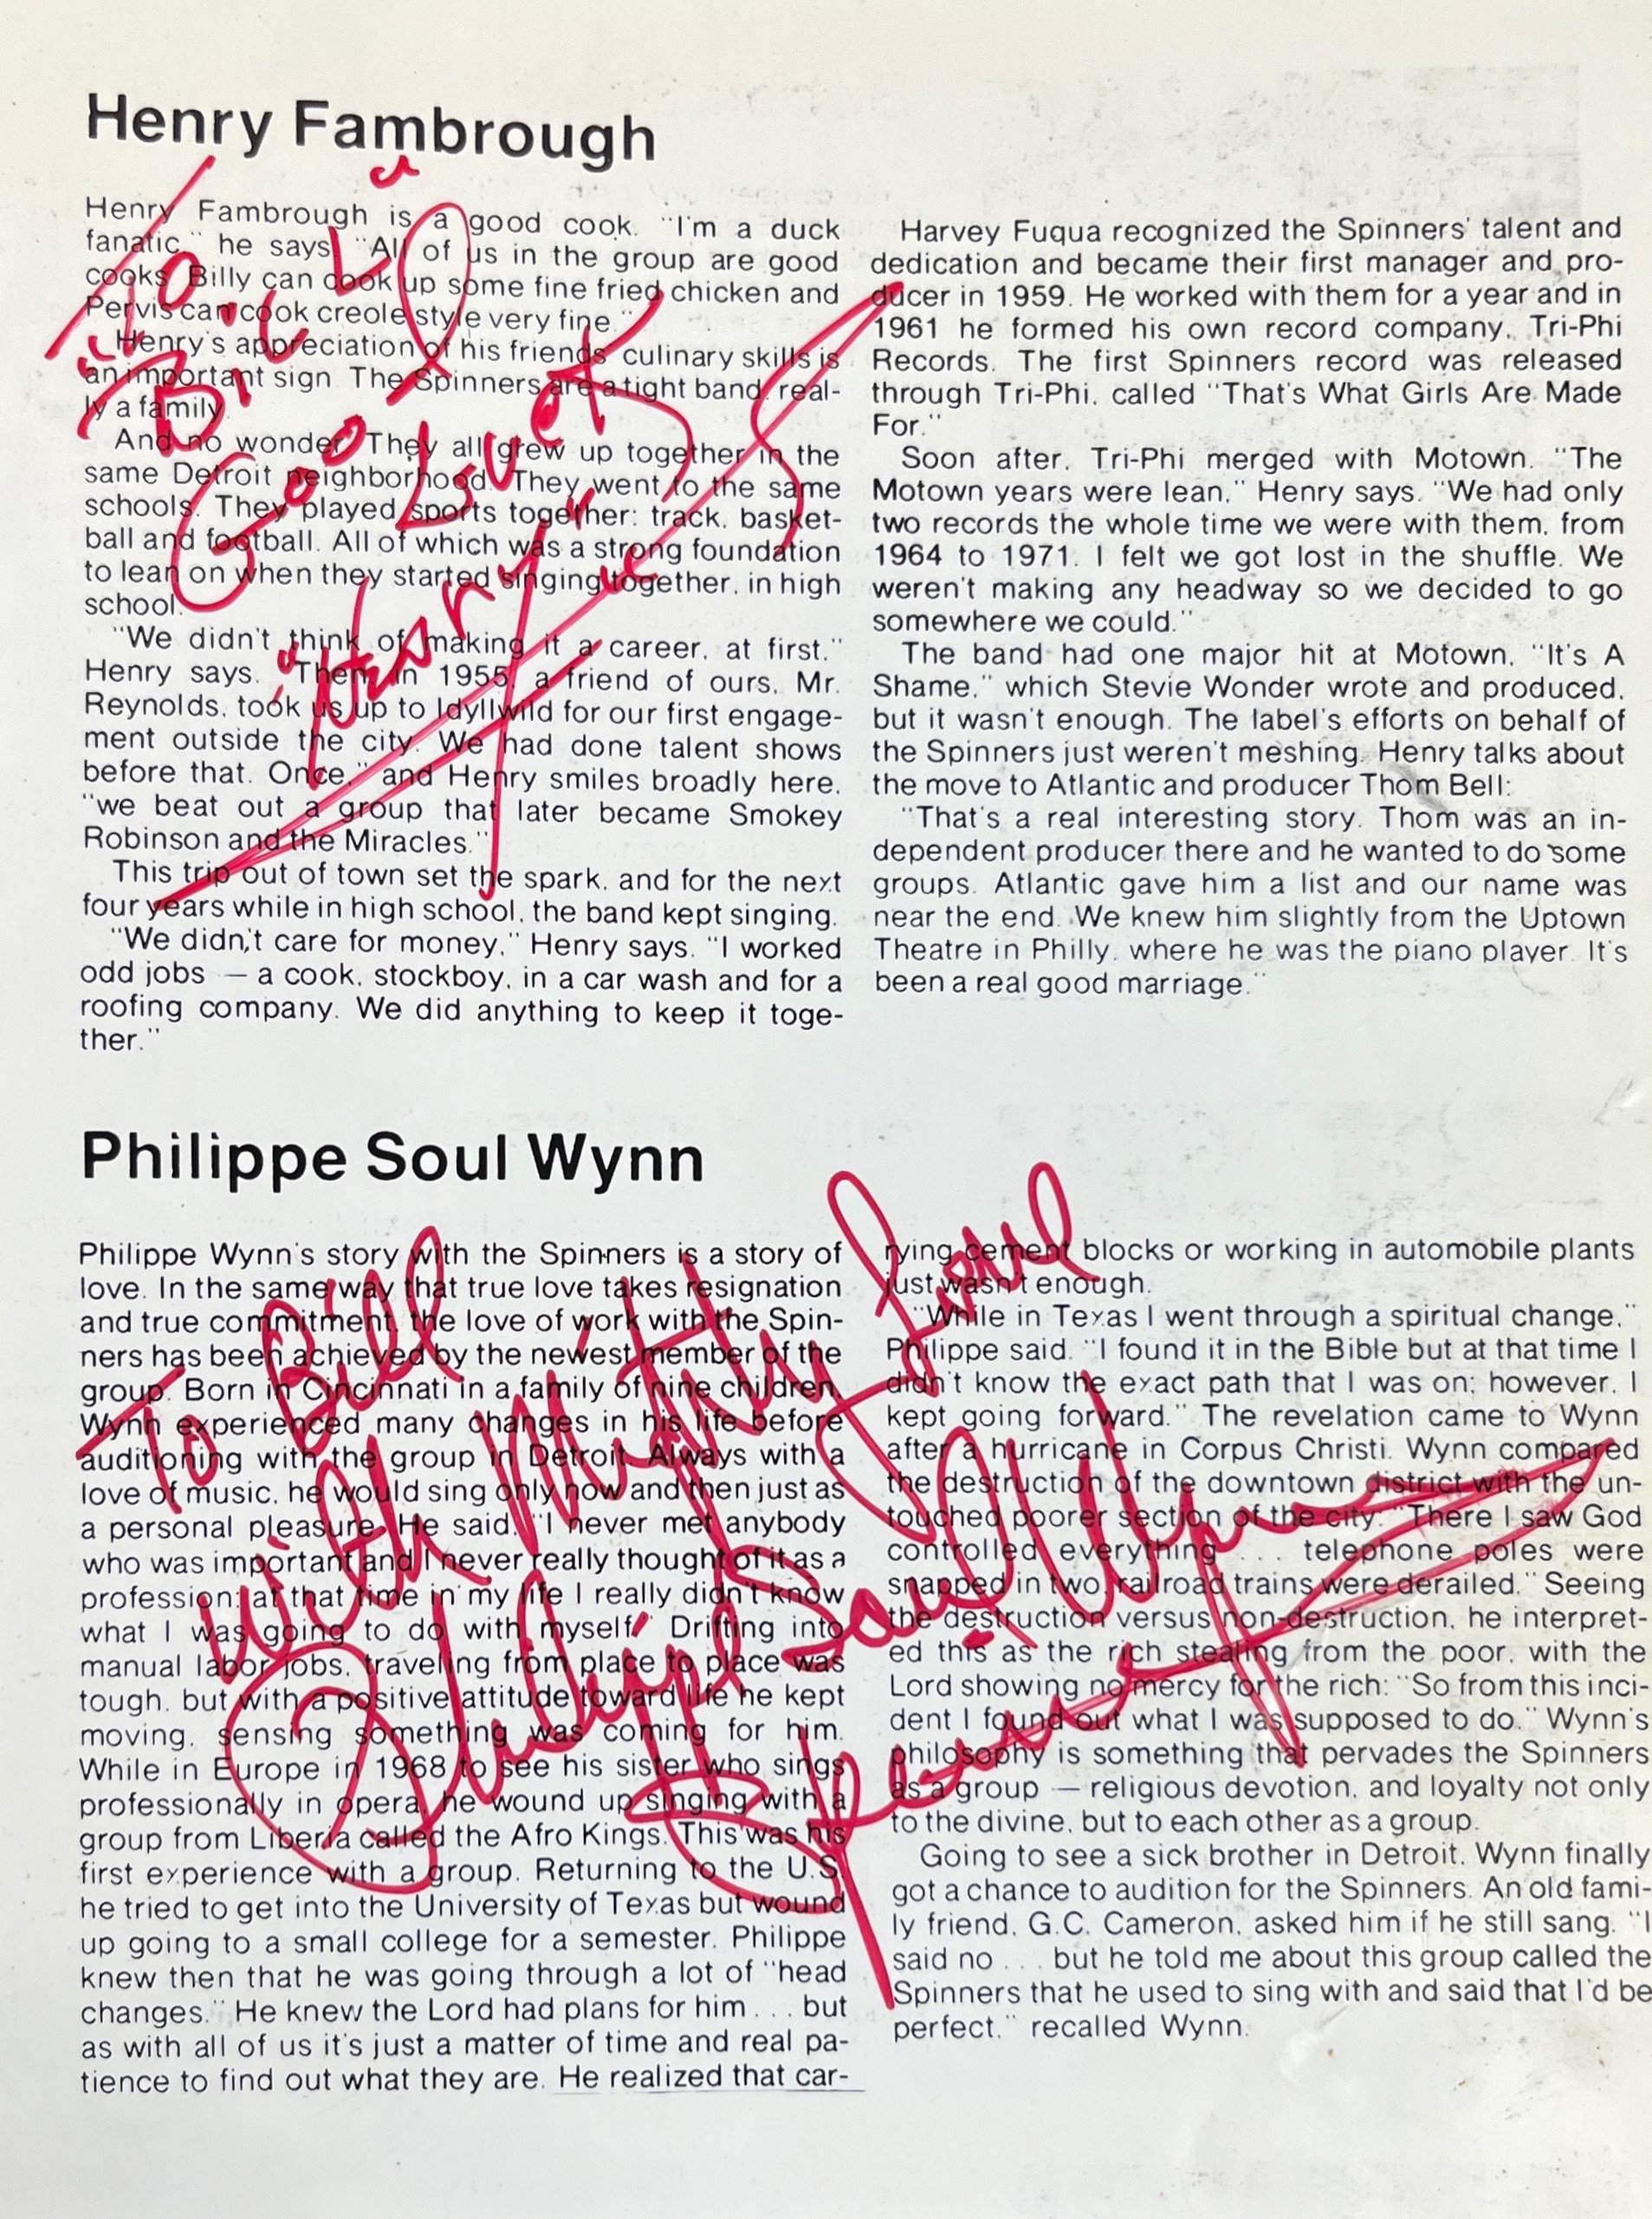 Henry Fambrough
Henry Fambrough is a good cook. "I'm a duck
fanatic," he says. "All of us in the group are good
cooks. Billy can cook up some fine fried chicken and
Pervis can cook creole style very fine."
Henry's appreciation of his friends' culinary skills is
an important sign. The Spinners are a tight band, real-
ly a family.
And no wonder. They all grew up together in the
same Detroit neighborhood. They went to the same
schools. They played sports together: track, basket-
ball and football. All of which was a strong foundation
to lean on when they started singing together, in high
school.
"We didn't think of making it a career, at first."
Henry says. "Then in 1955, a friend of ours, Mr.
Reynolds, took us up to Idyllwild for our first engage-
ment outside the city. We had done talent shows
before that. Once," and Henry smiles broadly here,
"we beat out a group that later became Smokey
Robinson and the Miracles."
This trip out of town set the spark, and for the next
four years while in high school, the band kept singing.
"We didn;t care for money," Henry says. "I worked
odd jobs — a cook, stockboy, in a car wash and for a
roofing company. We did anything to keep it toge-
ther."
Harvey Fuqua recognized the Spinners' talent and
dedication and became their first manager and pro-
ducer in 1959. He worked with them for a year and in
1961 he formed his own record company, Tri-Phi
Records. The first Spinners record was released
through Tri-Phi, called "That's What Girls Are Made
For."
Soon after, Tri-Phi merged with Motown. "The
Motown years were lean," Henry says. "We had only
two records the whole time we were with them, from
1964 to 1971. I felt we got lost in the shuffle. We
weren't making any headway so we decided to go
somewhere we could."
The band had one major hit at Motown, "It's A
Shame," which Stevie Wonder wrote and produced,
but it wasn't enough. The label's efforts on behalf of
the Spinners just weren't meshing. Henry talks about
the move to Atlantic and producer Thom Bell:
"That's a real interesting story. Thom was an in-
dependent producer there and he wanted to do some
groups. Atlantic gave him a list and our name was
near the end. We knew him slightly from the Uptown
Theatre in Philly, where he was the piano player. It's
been a real good marriage."
To
"Bill"
Good Luck
"Henry"
Philippe Soul Wynn
Philippe Wynn's story with the Spinners is a story of
love. In the same way that true love takes resignation
and true commitment, the love of work with the Spin-
ners has been achieved by the newest member of the
group. Born in Cincinnati in a family of nine children,
Wynn experienced many changes in his life before
auditioning with the group in Detroit. Always with a
love of music, he would sing only now and then just as
a personal pleasure. He said, "I never met anybody
who was important and I never really thought of it as a
profession; at that time in my life I really didn't know
what I was going to do with myself." Drifting into
manual labor jobs, traveling from place to place was
tough, but with a positive attitude toward life he kept
moving, sensing something was coming for him.
While in Europe in 1968 to see his sister who sings
professionally in opera, he wound up singing with a
group from Liberia called the Afro Kings. This was his
first experience with a group. Returning to the U.S.
he tried to get into the University of Texas but wound
up going to a small college for a semester. Philippe
knew then that he was going through a lot of "head
changes." He knew the Lord had plans for him . . . but
as with all of us it's just a matter of time and real pa-
tience to find out what they are. He realized that car-
rying cement blocks or working in automobile plants
just wasn't enough.
"While in Texas I went through a spiritual change,"
Philippe said. "I found it in the Bible but at that time I
didn't know the exact path that I was on; however, I
kept going forward." The revelation came to Wynn
after a hurricane in Corpus Christi. Wynn compared
the destruction of the downtown district with the un-
touched poorer section of the city: "There I saw God
controlled everything . . . telephone poles were
snapped in two, railroad trains were derailed." Seeing
the destruction versus non-destruction, he interpret-
ed this as the rich stealing from the poor, with the
Lord showing no mercy for the rich: "So from this inci-
dent I found out what I was supposed to do." Wynn's
philosophy is something that pervades the Spinners
as a group — religious devotion, and loyalty not only
to the divine, but to each other as a group.
Going to see a sick brother in Detroit, Wynn finally
got a chance to audition for the Spinners. An old fami-
ly friend, G.C. Cameron, asked him if he still sang. "I
said no . . . but he told me about this group called the
Spinners that he used to sing with and said that I'd be
perfect," recalled Wynn.
To Bill
with Mighty Love
Philippe Soul Wynn